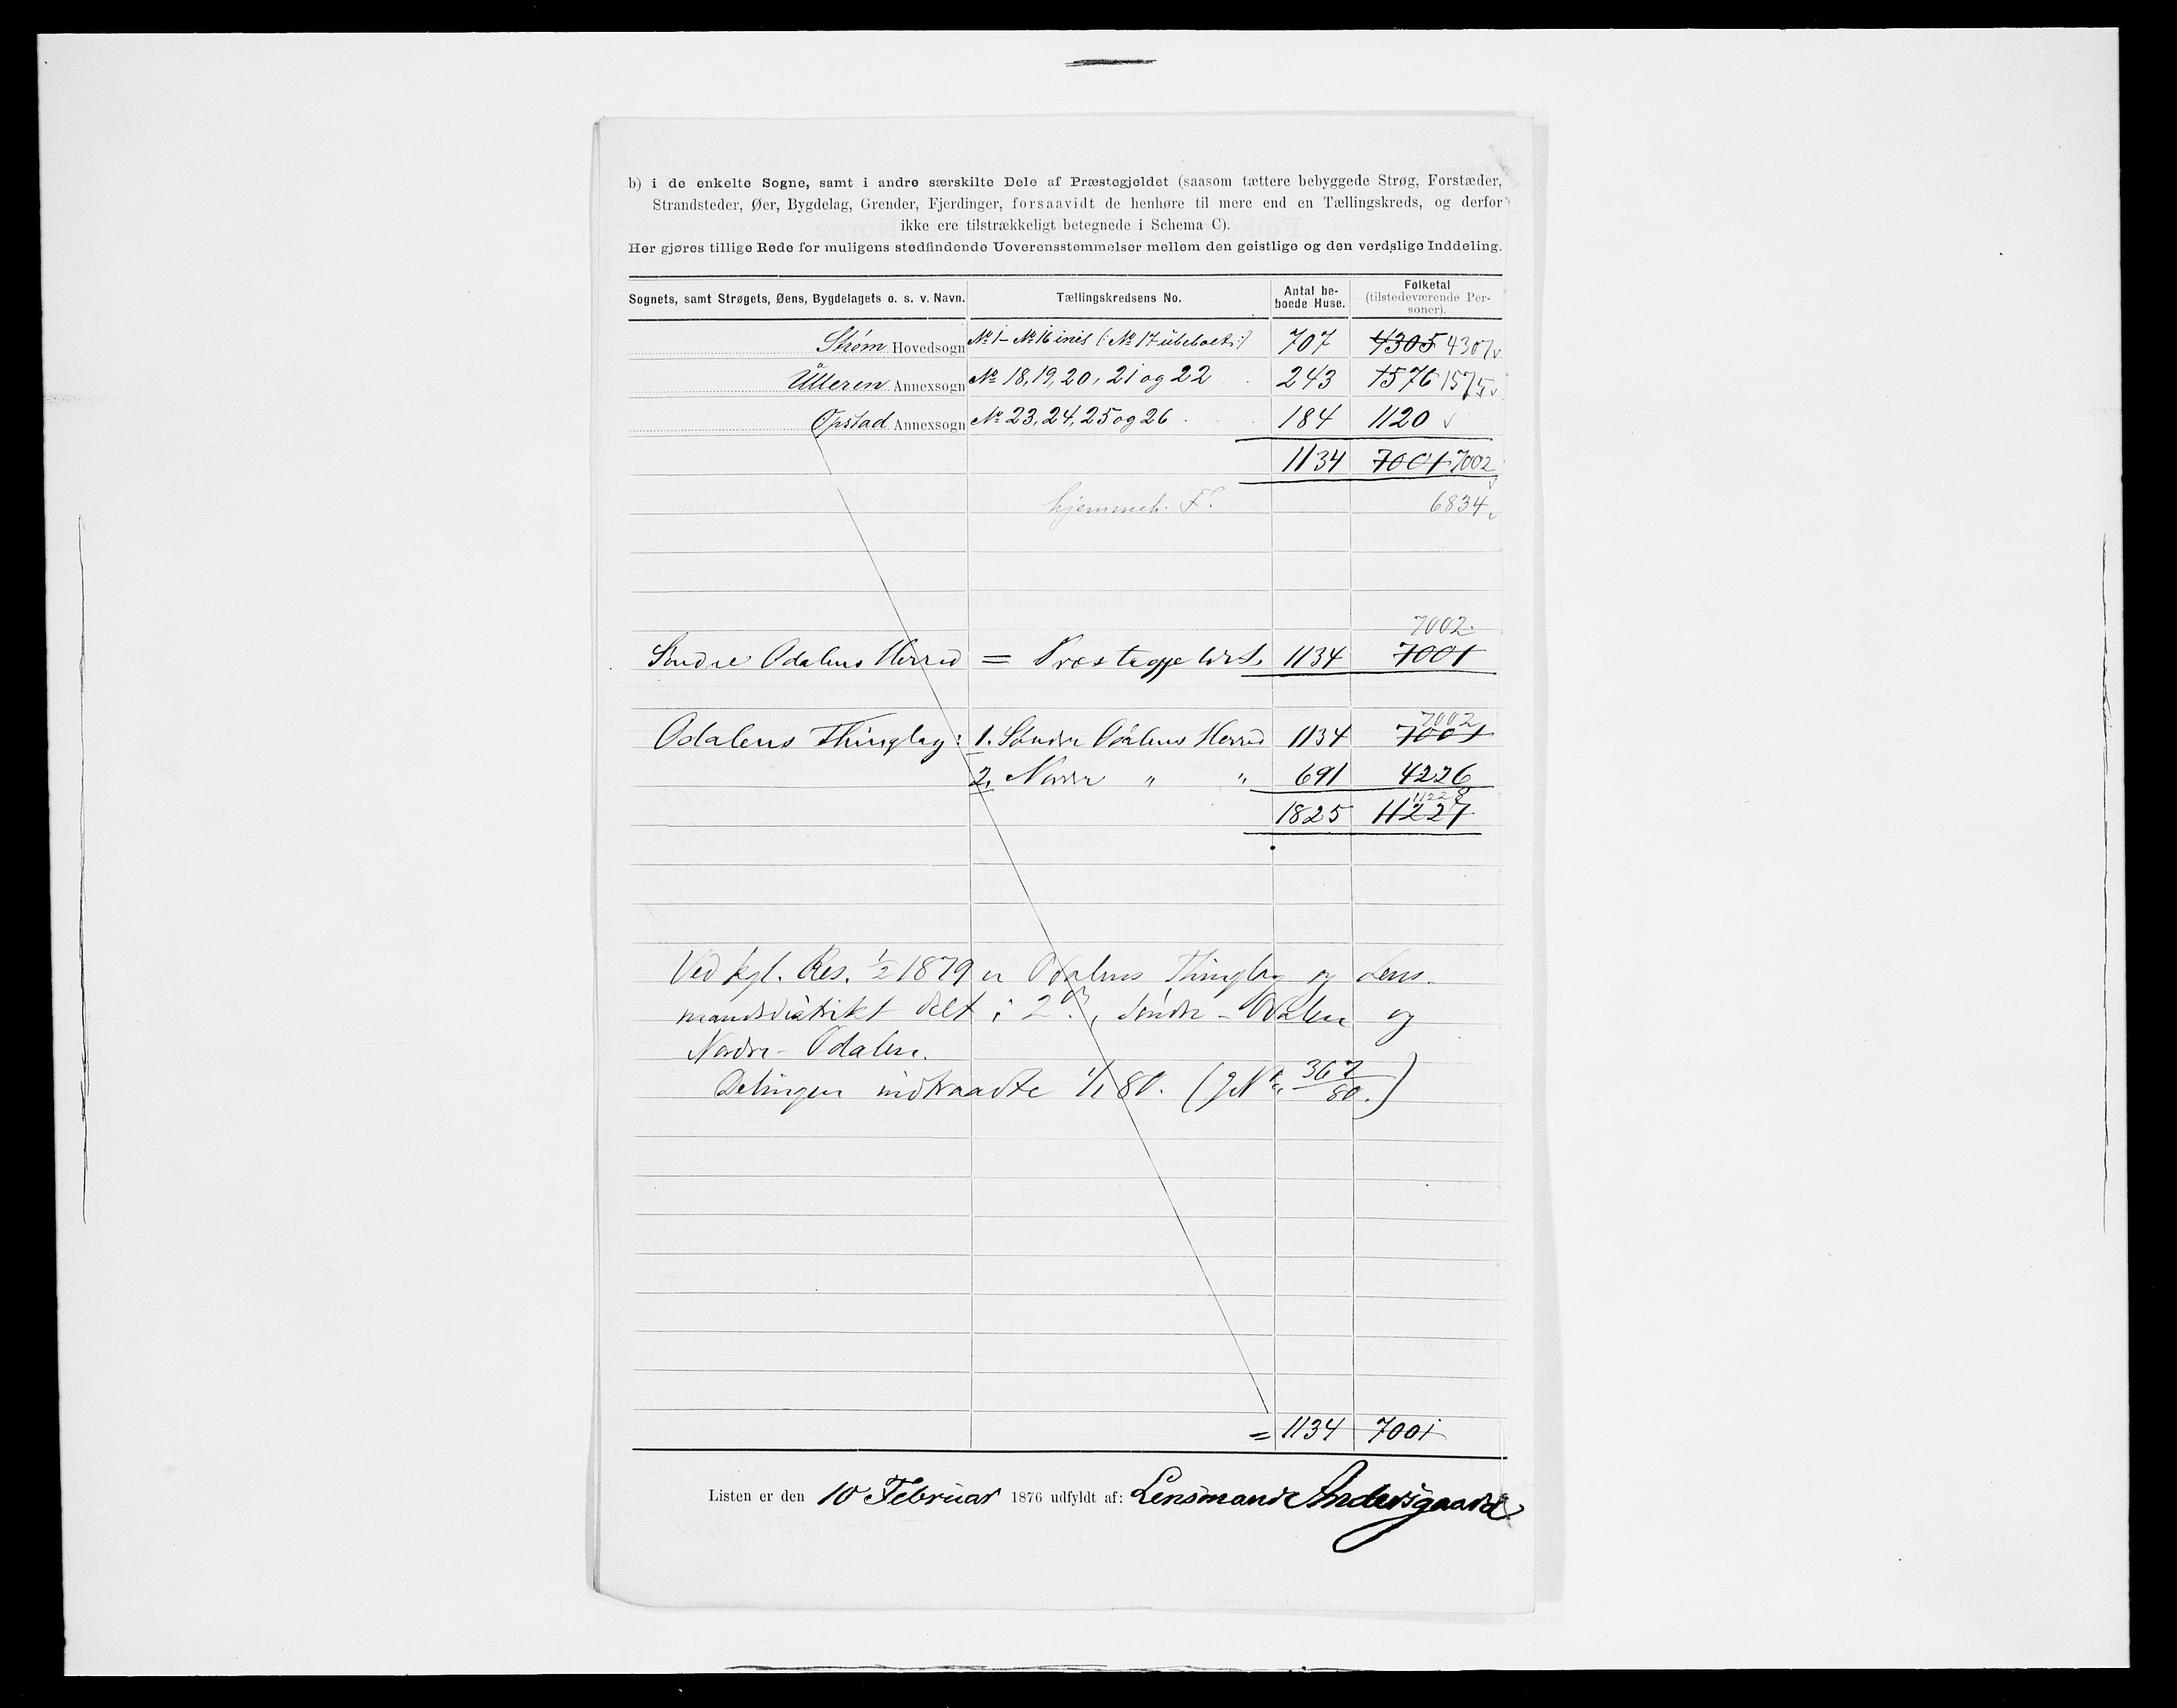 b) i de enkelte Sogne, samt i andre særskilte Dele af Præstegjeldet (saasom tættere bebyggede Strøg, Forstæder,
Strandsteder, Øer, Bygdelag, Grender, Fjerdinger, forsaavidt de henhøre til mere end en Tællingskreds, og derfor
ikke ere tilstrækkeligt betegnede i Schema C).
Her gjøres tillige Rede for muligens stedfindende Uoverensstemmelser mellem den geistlige og den verdslige Inddeling.
Sognets, samt Strøgets, Øens, Bygdelagets o. s. v. Navn. Tællingskredsens No. Antal beboede Huse. Folketal (tilstedeværende Personer).
Strøm Hovedsogn No 1 - No 16 incl (: No 17 ubeboet :) 707 4305 4307
Ulleren Annexsogn No 18, 19, 20, 21 og 22 243 1576 1575
Opstad Annexsogn No 23, 24, 25 og 26 184 1120
1134 7001 7002
hjemmeh. F. 6834
7002
Søndre Odalens Herred = Præstegjeldet. 1134 7001
7002
Odalens Thinglag: 1. Søndre Odalens Herred 1134 7001
2. Nordre " " 691 4226
11228
1825 11227
Ved kgl. Res. 1/2 1879 er Odalens Thinglag og Lens-
mandsdistrikt delt i 2de, Søndre-Odalen og
Nordre-Odalen.
Delingen indtraadte 1/1 80. (JNr. 367/80.)
= 1134 7001
Listen er den 10 Februar 1876 udfyldt af: Lensmand Andersgaard